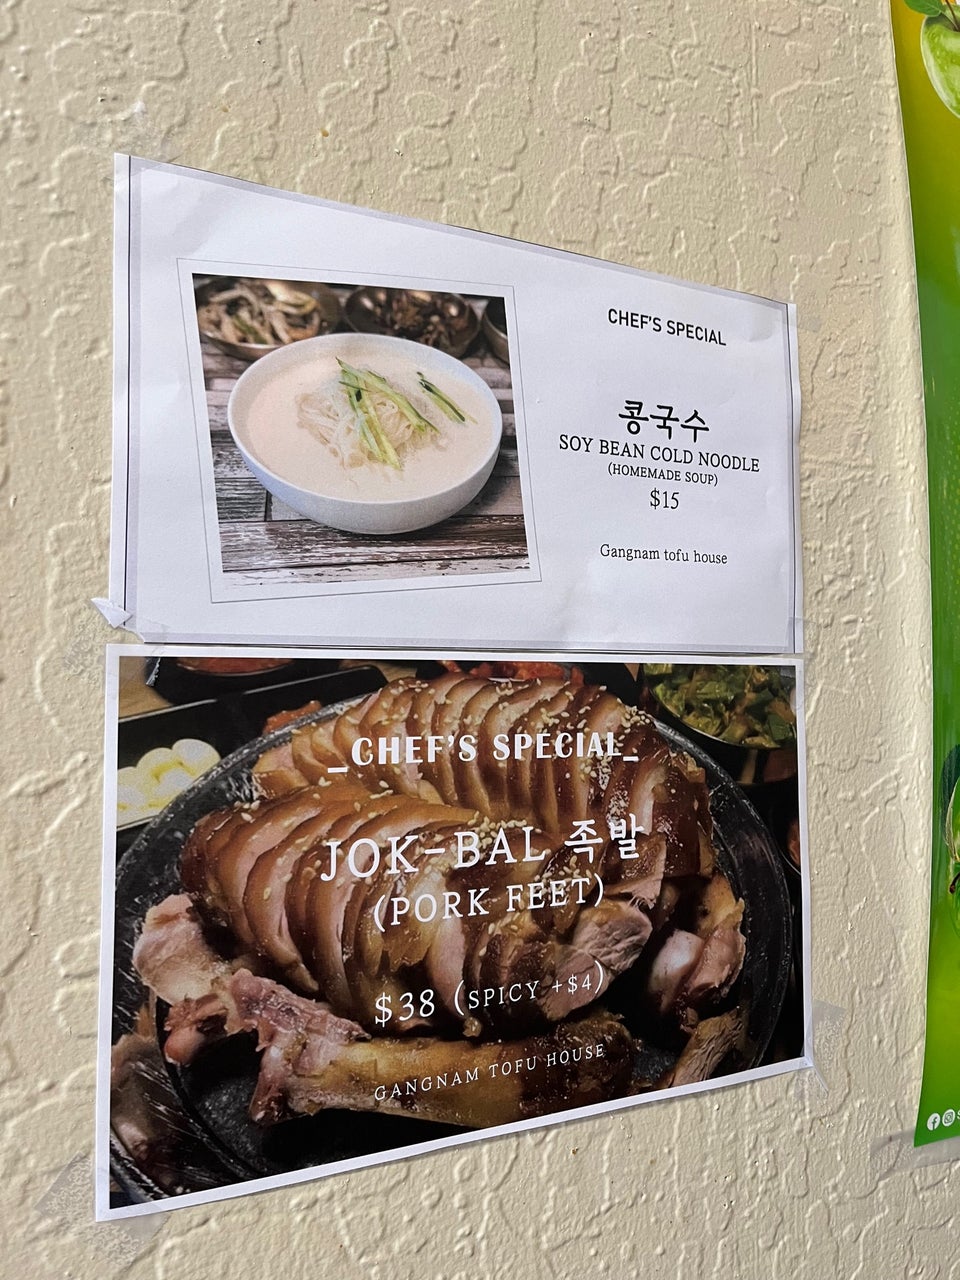 CHEF'S SPECIAL
콩국수
SOY BEAN COLD NOODLE
(HOMEMADE SOUP)
$15
Gangnam tofu house
_CHEF'S SPECIAL_
JOK-BAL 족발
(PORK FEET)
$38 (SPICY +$4)
GANGNAM TOFU HOUSE